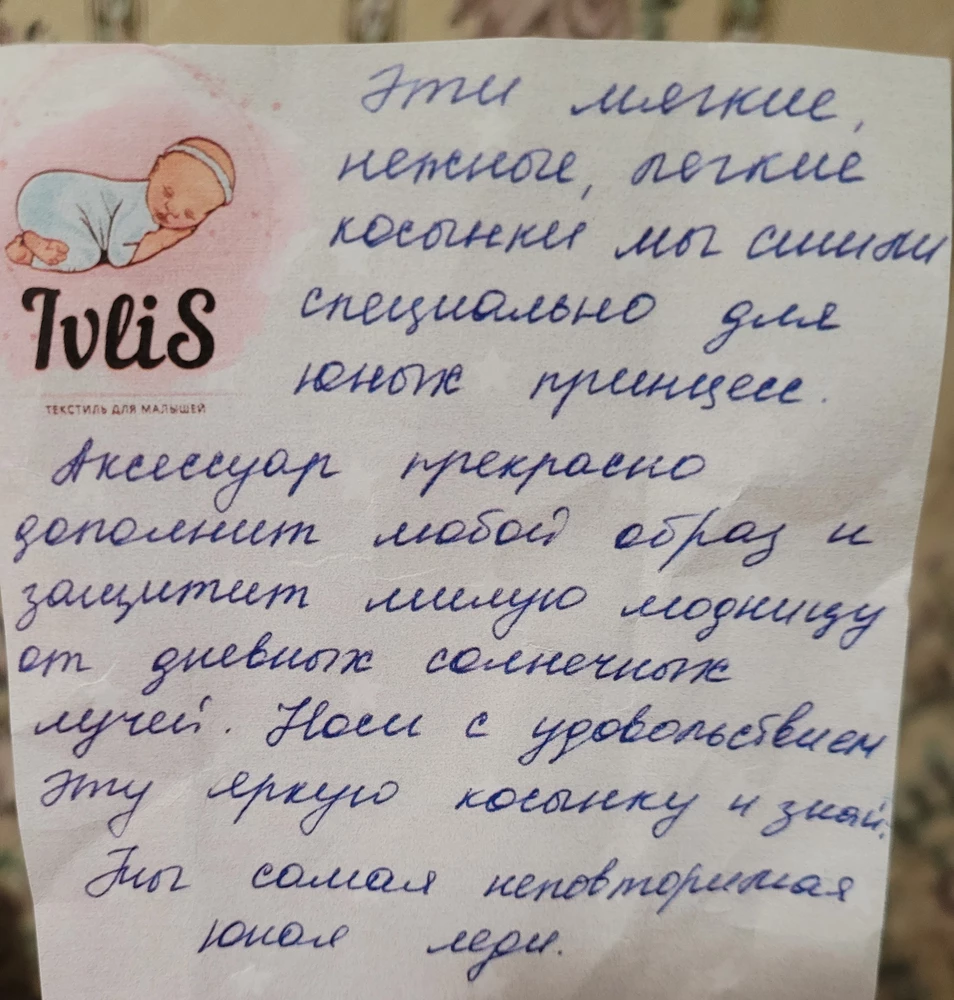 Эти мягкие,
нежные, легкие
косынки мы сшили
специально для
юных принцесс.
IvliS
ТЕКСТИЛЬ ДЛЯ МАЛЫШЕЙ
Аксессуар прекрасно
дополнит любой образ и
защитит милую модницу
от дневных солнечных
лучей. Носи с удовольствием
эту яркую косынку и знай:
Ты самая неповторимая
юная леди.